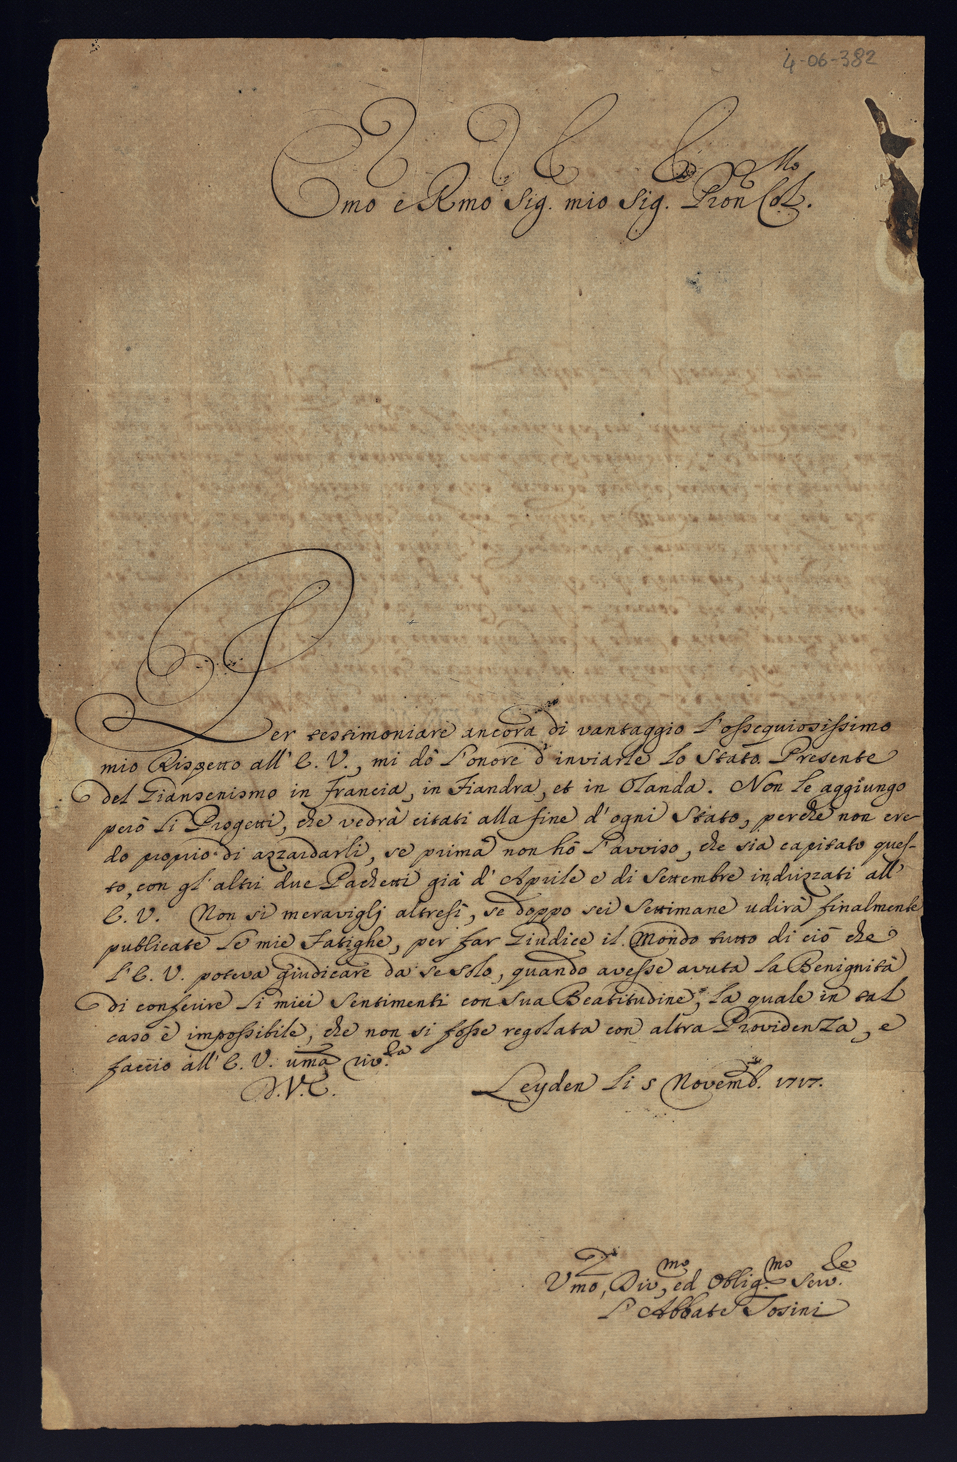 4-06-382
Emo e Rmo Sig. mio Sig. Pron Col.mo
Per testimoniare ancora di vantaggio l'ossequiosissimo
mio Rispetto all' E. V., mi dò l'onore d'inviarle lo Stato Presente
del Giansenismo in Francia, in Fiandra, et in Olanda. Non le aggiungo
però li Progetti, che vedrà citati alla fine d'ogni Stato, perche non cre-
do proprio di azzardarli, se prima non hò l'avviso, che sia capitato ques-
to, con gl'altri due Pachetti già d'Aprile e di Settembre indrizzati all'
E. V. Non si meraviglj altresì, se doppo sei Settimane udirà finalmente
publicate le mie Fatighe, per far Giudice il Mondo tutto di ciò che
l'E. V. poteva giudicare da se solo, quando avesse avuta la Benignità
di conferire li miei Sentimenti con Sua Beatitudine, la quale in tal
caso è impossibile, che non si fosse regolata con altra Providenza, e
faccio all' E. V. uma riv.za
D. V. E.
Leyden li 5 Novemb. 1717.
Vmo, Div.mo, ed Oblig.mo Serv.re
l'Abbate Tosini